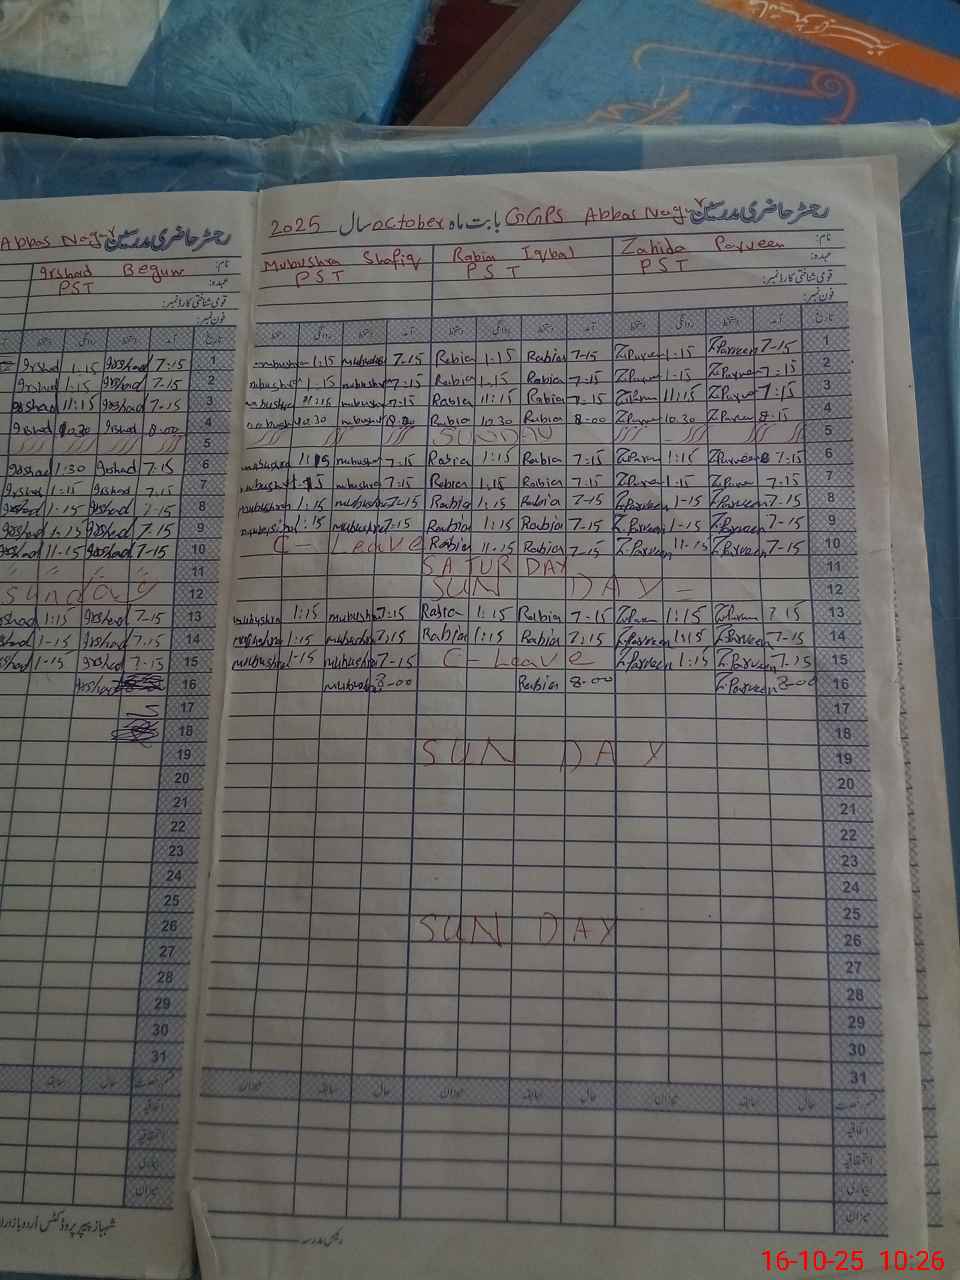 رجسٹر حاضری مدرسین GGPS Abbas Nagar بابت ماہ October سال 2025
نام: Zahida Parveen Rabia Iqbal Mubushra Shafiq
عہدہ: PST PST PST
قومی شناختی کارڈ نمبر:
فون نمبر:
تاریخ آمد دستخط روانگی دستخط آمد دستخط روانگی دستخط آمد دستخط روانگی دستخط
1 7-15 Z.Parveen 1:15 Z.Parveen 7-15 Rabia 1:15 Rabia 7-15 mubushra 1:15 mubushra
2 7-15 Z.Parveen 1-15 7-15 Rabia 1.15 Rabia 7-15 mubushra 1-15 mubushra
3 7:15 11:15 7-15 Rabia 11:15 Rabia 7-15 mubushra 11:15 mubushra
4 8-15 Z.Parveen 10.30 8-00 Rabia 10.30 Rabia 8-00 mubushra 10.30 mubushra
5 SUNDAY
6 7-15 Z.Parveen 1:15 7:15 Rabia 1:15 Rabia 7:15 mubushra 1:15 mubushra
7 7-15 1-15 7:15 Rabia 1.15 Rabia 7:15 mubushra 1:15 mubushra
8 7-15 Z.Parveen 1-15 Z.Parveen 7-15 Rabia 1:15 Rabia 7-15 mubushra 1:15 mubushra
9 7-15 Z.Parveen 1-15 Z.Parveen 7-15 Rabia 1:15 Rabia 7-15 mubushra 1:15
10 7-15 Z.Parveen 11-15 Z.Parveen 7-15 Rabia 11-15 Rabia C-Leave
11 SATUR DAY
12 SUN DAY
13 7:15 1:15 7-15 Rabia 1:15 Rabia 7:15 mubushra 1:15 mubushra
14 7-15 Z.Parveen 1:15 Z.Parveen 7:15 Rabia 1:15 Rabia 7:15 mubushra 1:15 mubushra
15 7-15 Z.Parveen 1:15 Z.Parveen C-Leave 7-15 mubushra 1-15 mubushra
16 8-00 Z.Parveen 8-00 Rabia 8-00 mubushra
17
18
19 SUN DAY
20
21
22
23
24
25
26 SUN DAY
27
28
29
30
31
حال سابقہ میزان حال سابقہ میزان حال سابقہ میزان
اتفاقیہ
استحقاقیہ
بیماری
میزان
رئیس مدرسہ
رجسٹر حاضری مدرسین Abbas Nagar
نام: Irshad Begum
عہدہ: PST
قومی شناختی کارڈ نمبر:
فون نمبر:
تاریخ آمد دستخط روانگی دستخط
1 7-15 Irshad 1.15 Irshad
2 7-15 Irshad 1:15 Irshad
3 7-15 Irshad 11:15 Irshad
4 8-00 Irshad 10.30 Irshad
5
6 7-15 Irshad 1:30 Irshad
7 7.15 Irshad 1:15 Irshad
8 7-15 Irshad 1-15 Irshad
9 7.15 Irshad 1:15 Irshad
10 7-15 Irshad 11-15 Irshad
11
12 Sunday
13 7-15 Irshad 1:15 Irshad
14 7.15 Irshad 1-15 Irshad
15 7-15 Irshad 1-15 Irshad
16 Irshad
17
18
19
20
21
22
23
24
25
26
27
28
29
30
31
حال سابقہ
اتفاقیہ
استحقاقیہ
بیماری
میزان
شہباز پیپر پروڈکٹس اُردو بازار
16-10-25 10:26